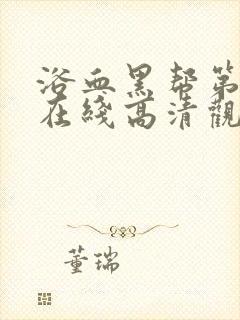 浴血黑帮第
在綫高清觀
董瑞